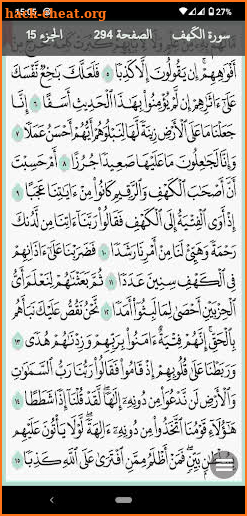 hack-cheat.org
15:05
سورة الكهف الصفحة 294 الجزء 15
أَفْوَٰهِهِمْ إِن يَقُولُونَ إِلَّا كَذِبًا ٥ فَلَعَلَّكَ بَٰخِعٌ نَّفْسَكَ
عَلَىٰٓ ءَاثَٰرِهِمْ إِن لَّمْ يُؤْمِنُوا۟ بِهَٰذَا ٱلْحَدِيثِ أَسَفًا ٦ إِنَّا
جَعَلْنَا مَا عَلَى ٱلْأَرْضِ زِينَةً لَّهَا لِنَبْلُوَهُمْ أَيُّهُمْ أَحْسَنُ عَمَلًا ٧
وَإِنَّا لَجَٰعِلُونَ مَا عَلَيْهَا صَعِيدًا جُرُزًا ٨ أَمْ حَسِبْتَ
أَنَّ أَصْحَٰبَ ٱلْكَهْفِ وَٱلرَّقِيمِ كَانُوا۟ مِنْ ءَايَٰتِنَا عَجَبًا ٩
إِذْ أَوَى ٱلْفِتْيَةُ إِلَى ٱلْكَهْفِ فَقَالُوا۟ رَبَّنَآ ءَاتِنَا مِن لَّدُنكَ
رَحْمَةً وَهَيِّئْ لَنَا مِنْ أَمْرِنَا رَشَدًا ١٠ فَضَرَبْنَا عَلَىٰٓ ءَاذَانِهِمْ
فِى ٱلْكَهْفِ سِنِينَ عَدَدًا ١١ ثُمَّ بَعَثْنَٰهُمْ لِنَعْلَمَ أَىُّ
ٱلْحِزْبَيْنِ أَحْصَىٰ لِمَا لَبِثُوٓا۟ أَمَدًا ١٢ نَّحْنُ نَقُصُّ عَلَيْكَ نَبَأَهُم
بِٱلْحَقِّ إِنَّهُمْ فِتْيَةٌ ءَامَنُوا۟ بِرَبِّهِمْ وَزِدْنَٰهُمْ هُدًى ١٣
وَرَبَطْنَا عَلَىٰ قُلُوبِهِمْ إِذْ قَامُوا۟ فَقَالُوا۟ رَبُّنَا رَبُّ ٱلسَّمَٰوَٰتِ
وَٱلْأَرْضِ لَن نَّدْعُوَا۟ مِن دُونِهِۦٓ إِلَٰهًا لَّقَدْ قُلْنَآ إِذًا شَطَطًا ١٤
هَٰٓؤُلَآءِ قَوْمُنَا ٱتَّخَذُوا۟ مِن دُونِهِۦٓ ءَالِهَةً لَّوْلَا يَأْتُونَ عَلَيْهِم
بَيِّنٍ فَمَنْ أَظْلَمُ مِمَّنِ ٱفْتَرَىٰ عَلَى ٱللَّهِ كَذِبًا ١٥